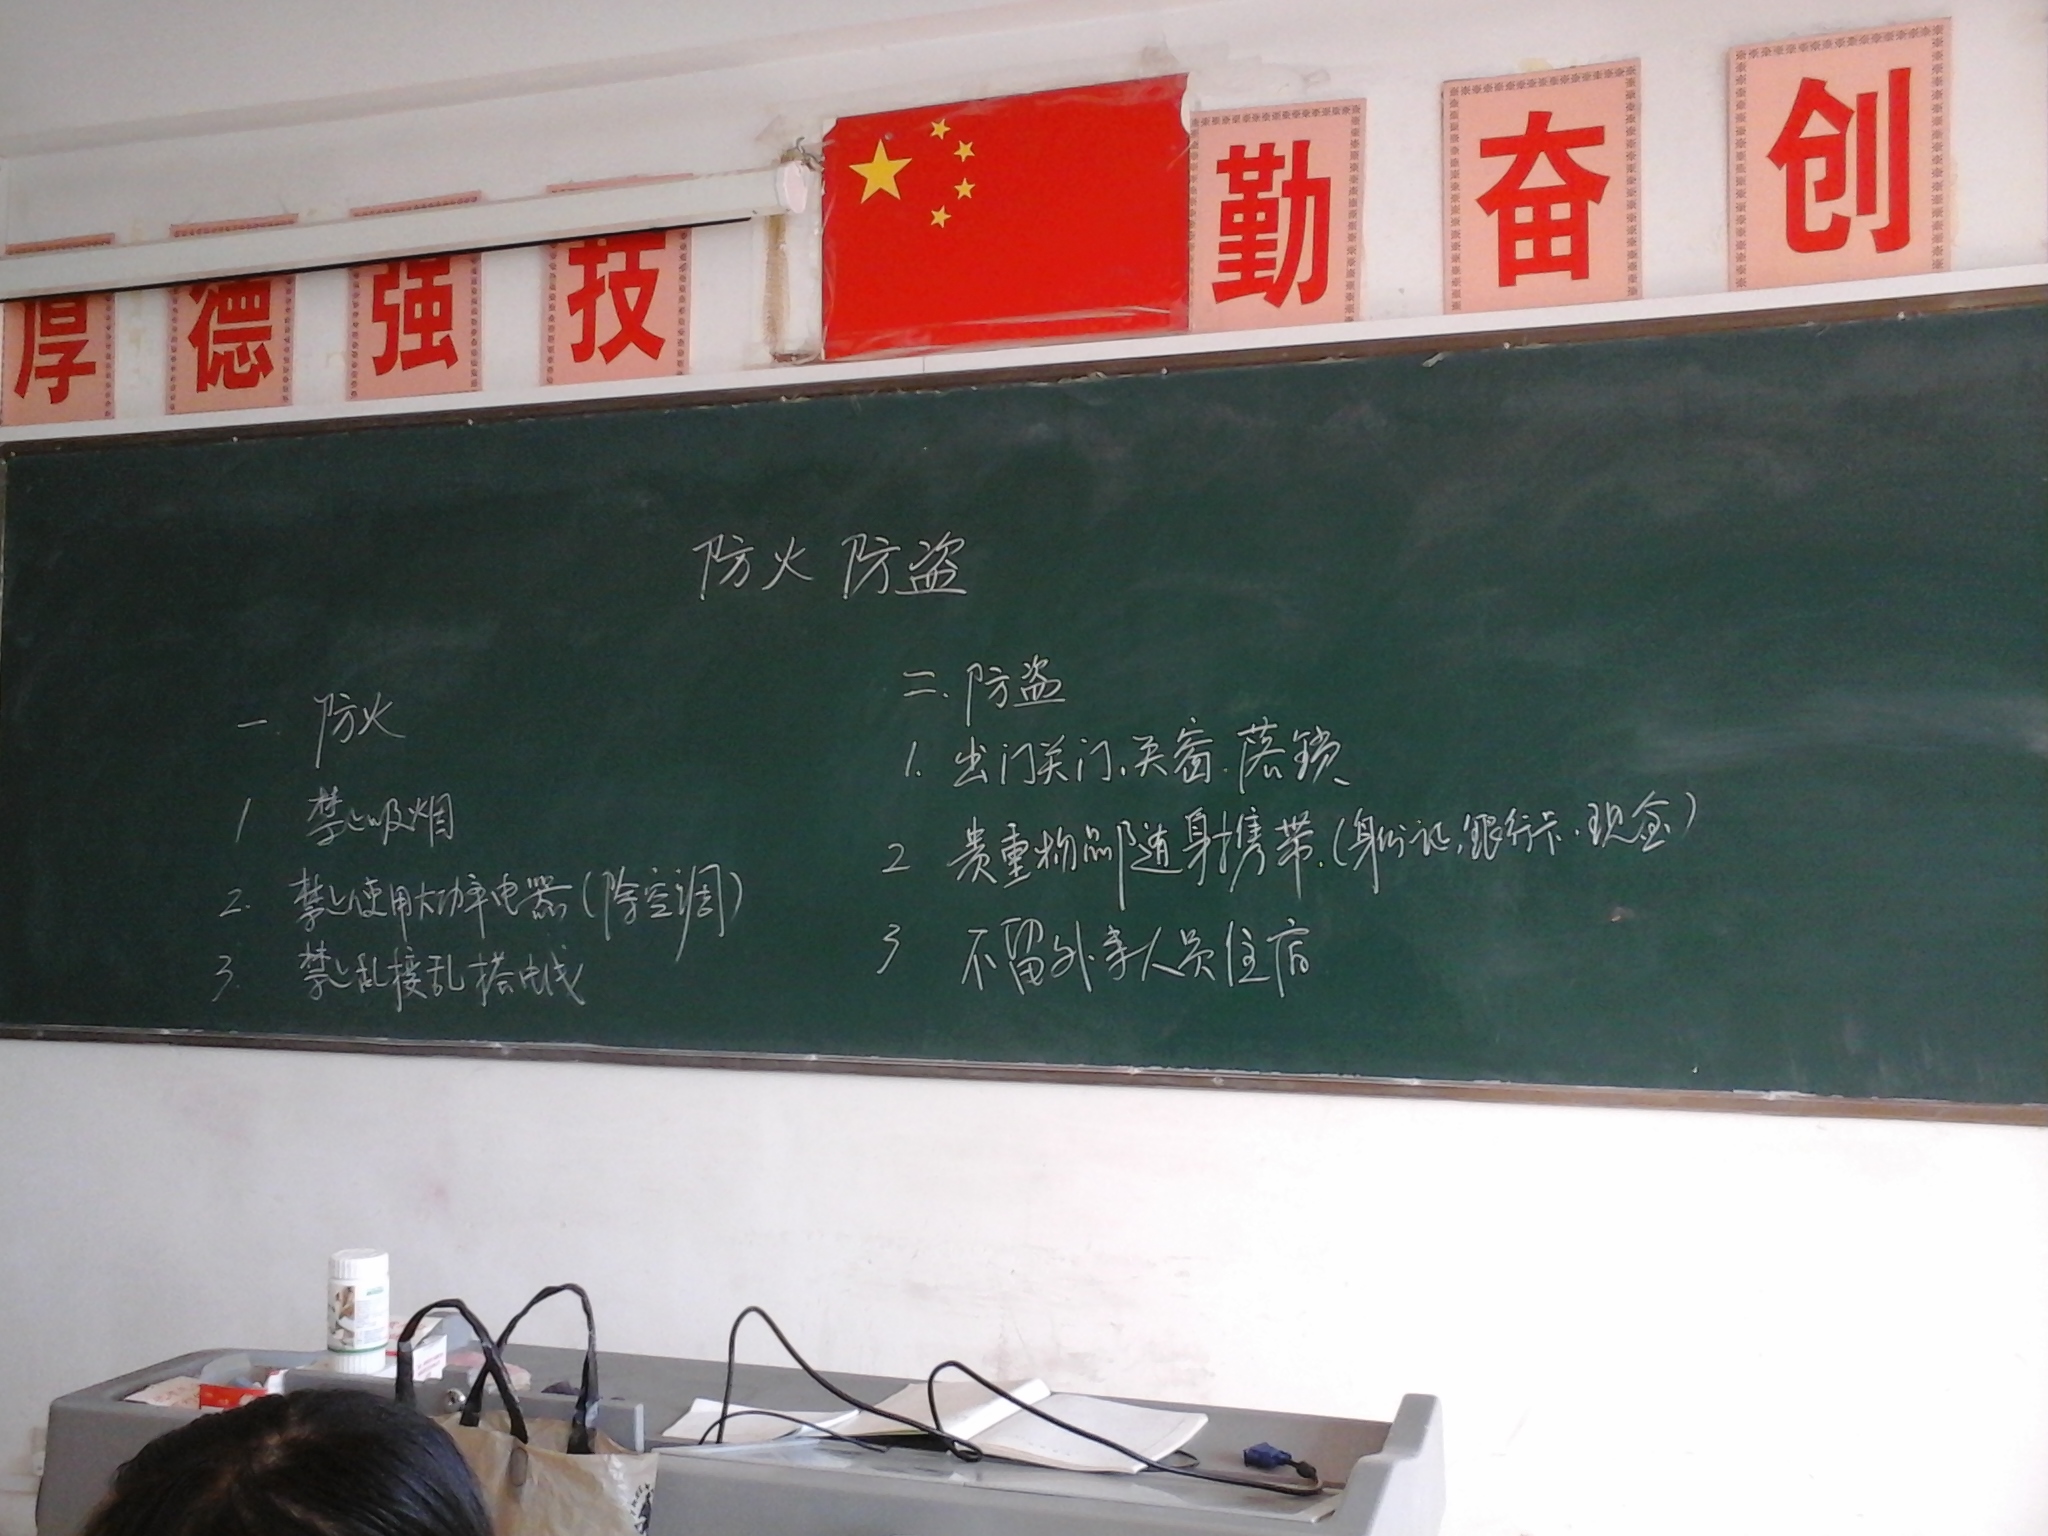 厚德强技 勤奋创
防火 防盗
一 防火
1 禁止吸烟
2. 禁止使用大功率电器(除空调)
3. 禁止乱接乱搭电线
二. 防盗
1. 出门关门、关窗、落锁、
2 贵重物品随身携带.(身份证、银行卡、现金)
3 不留外来人员住宿